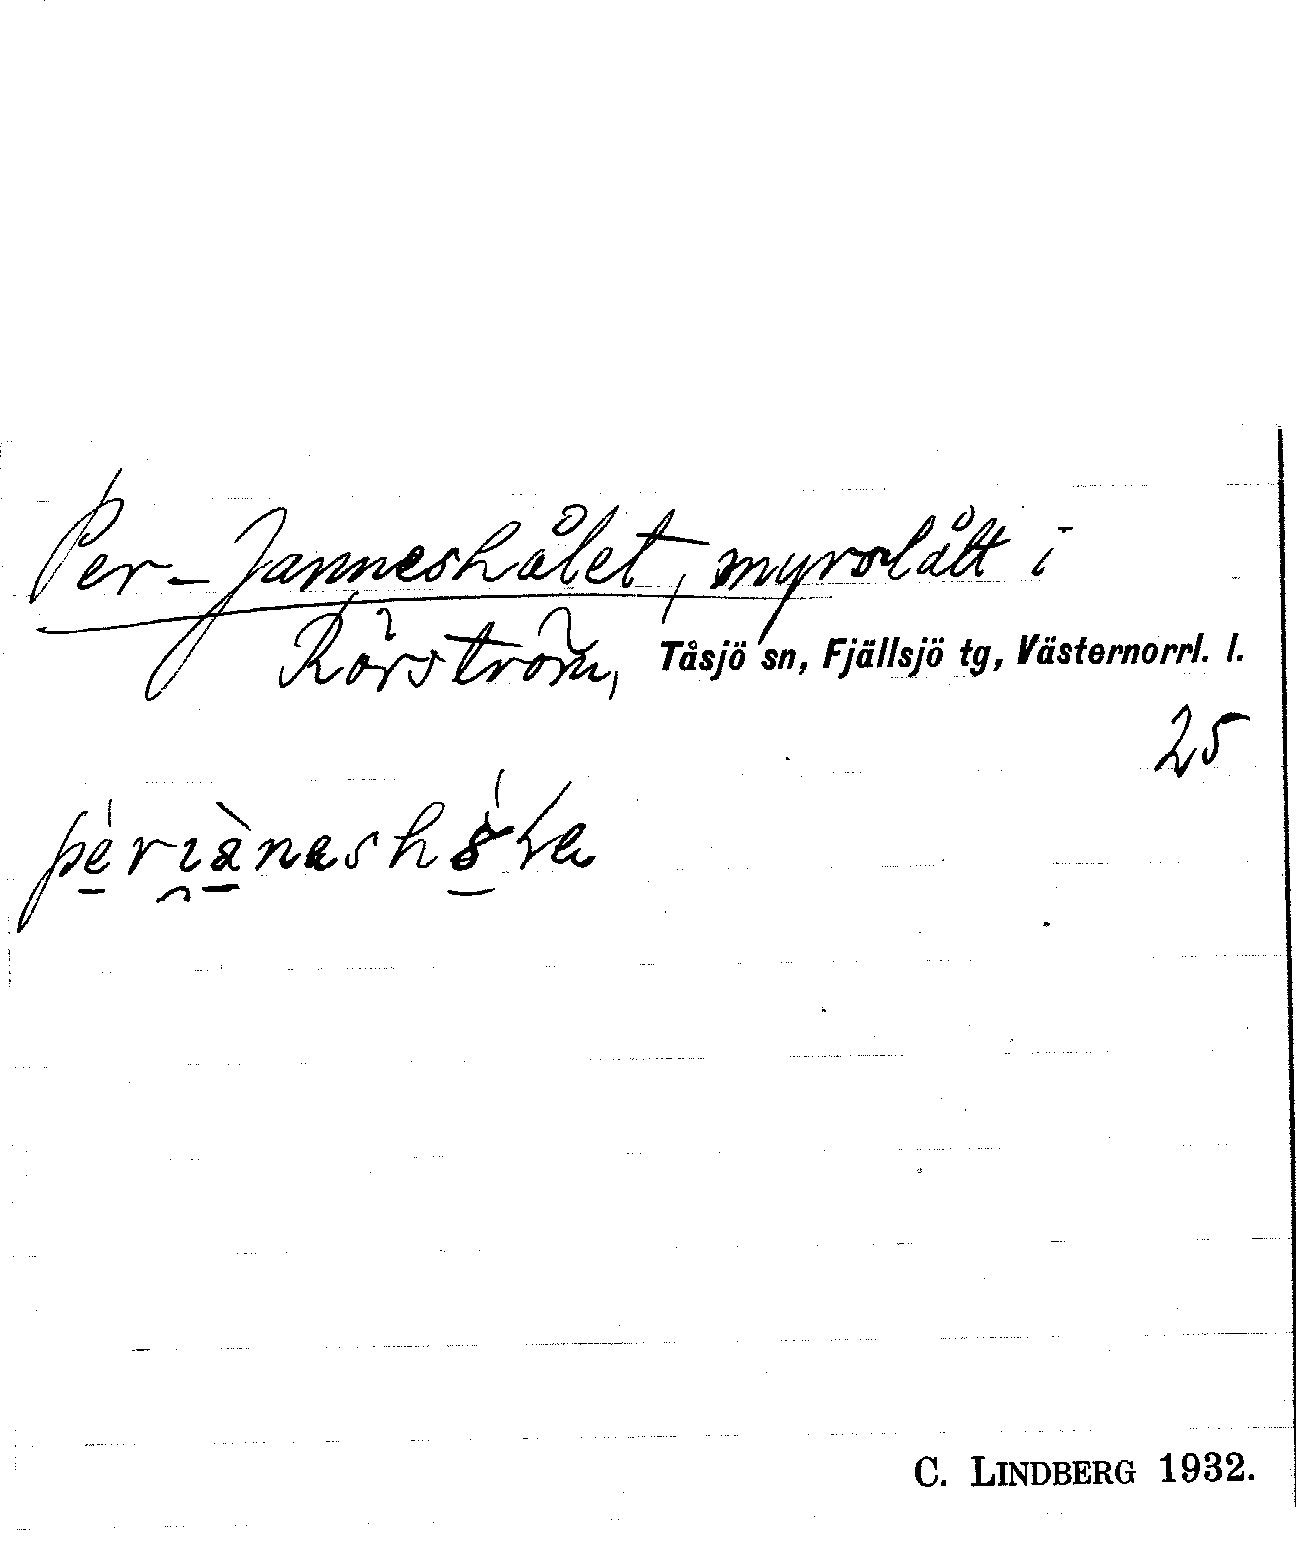 Per-Janneshålet, myrslått i
Rörström, Tåsjö sn, Fjällsjö tg, Västernorrl. l.
25
C. LINDBERG 1932.